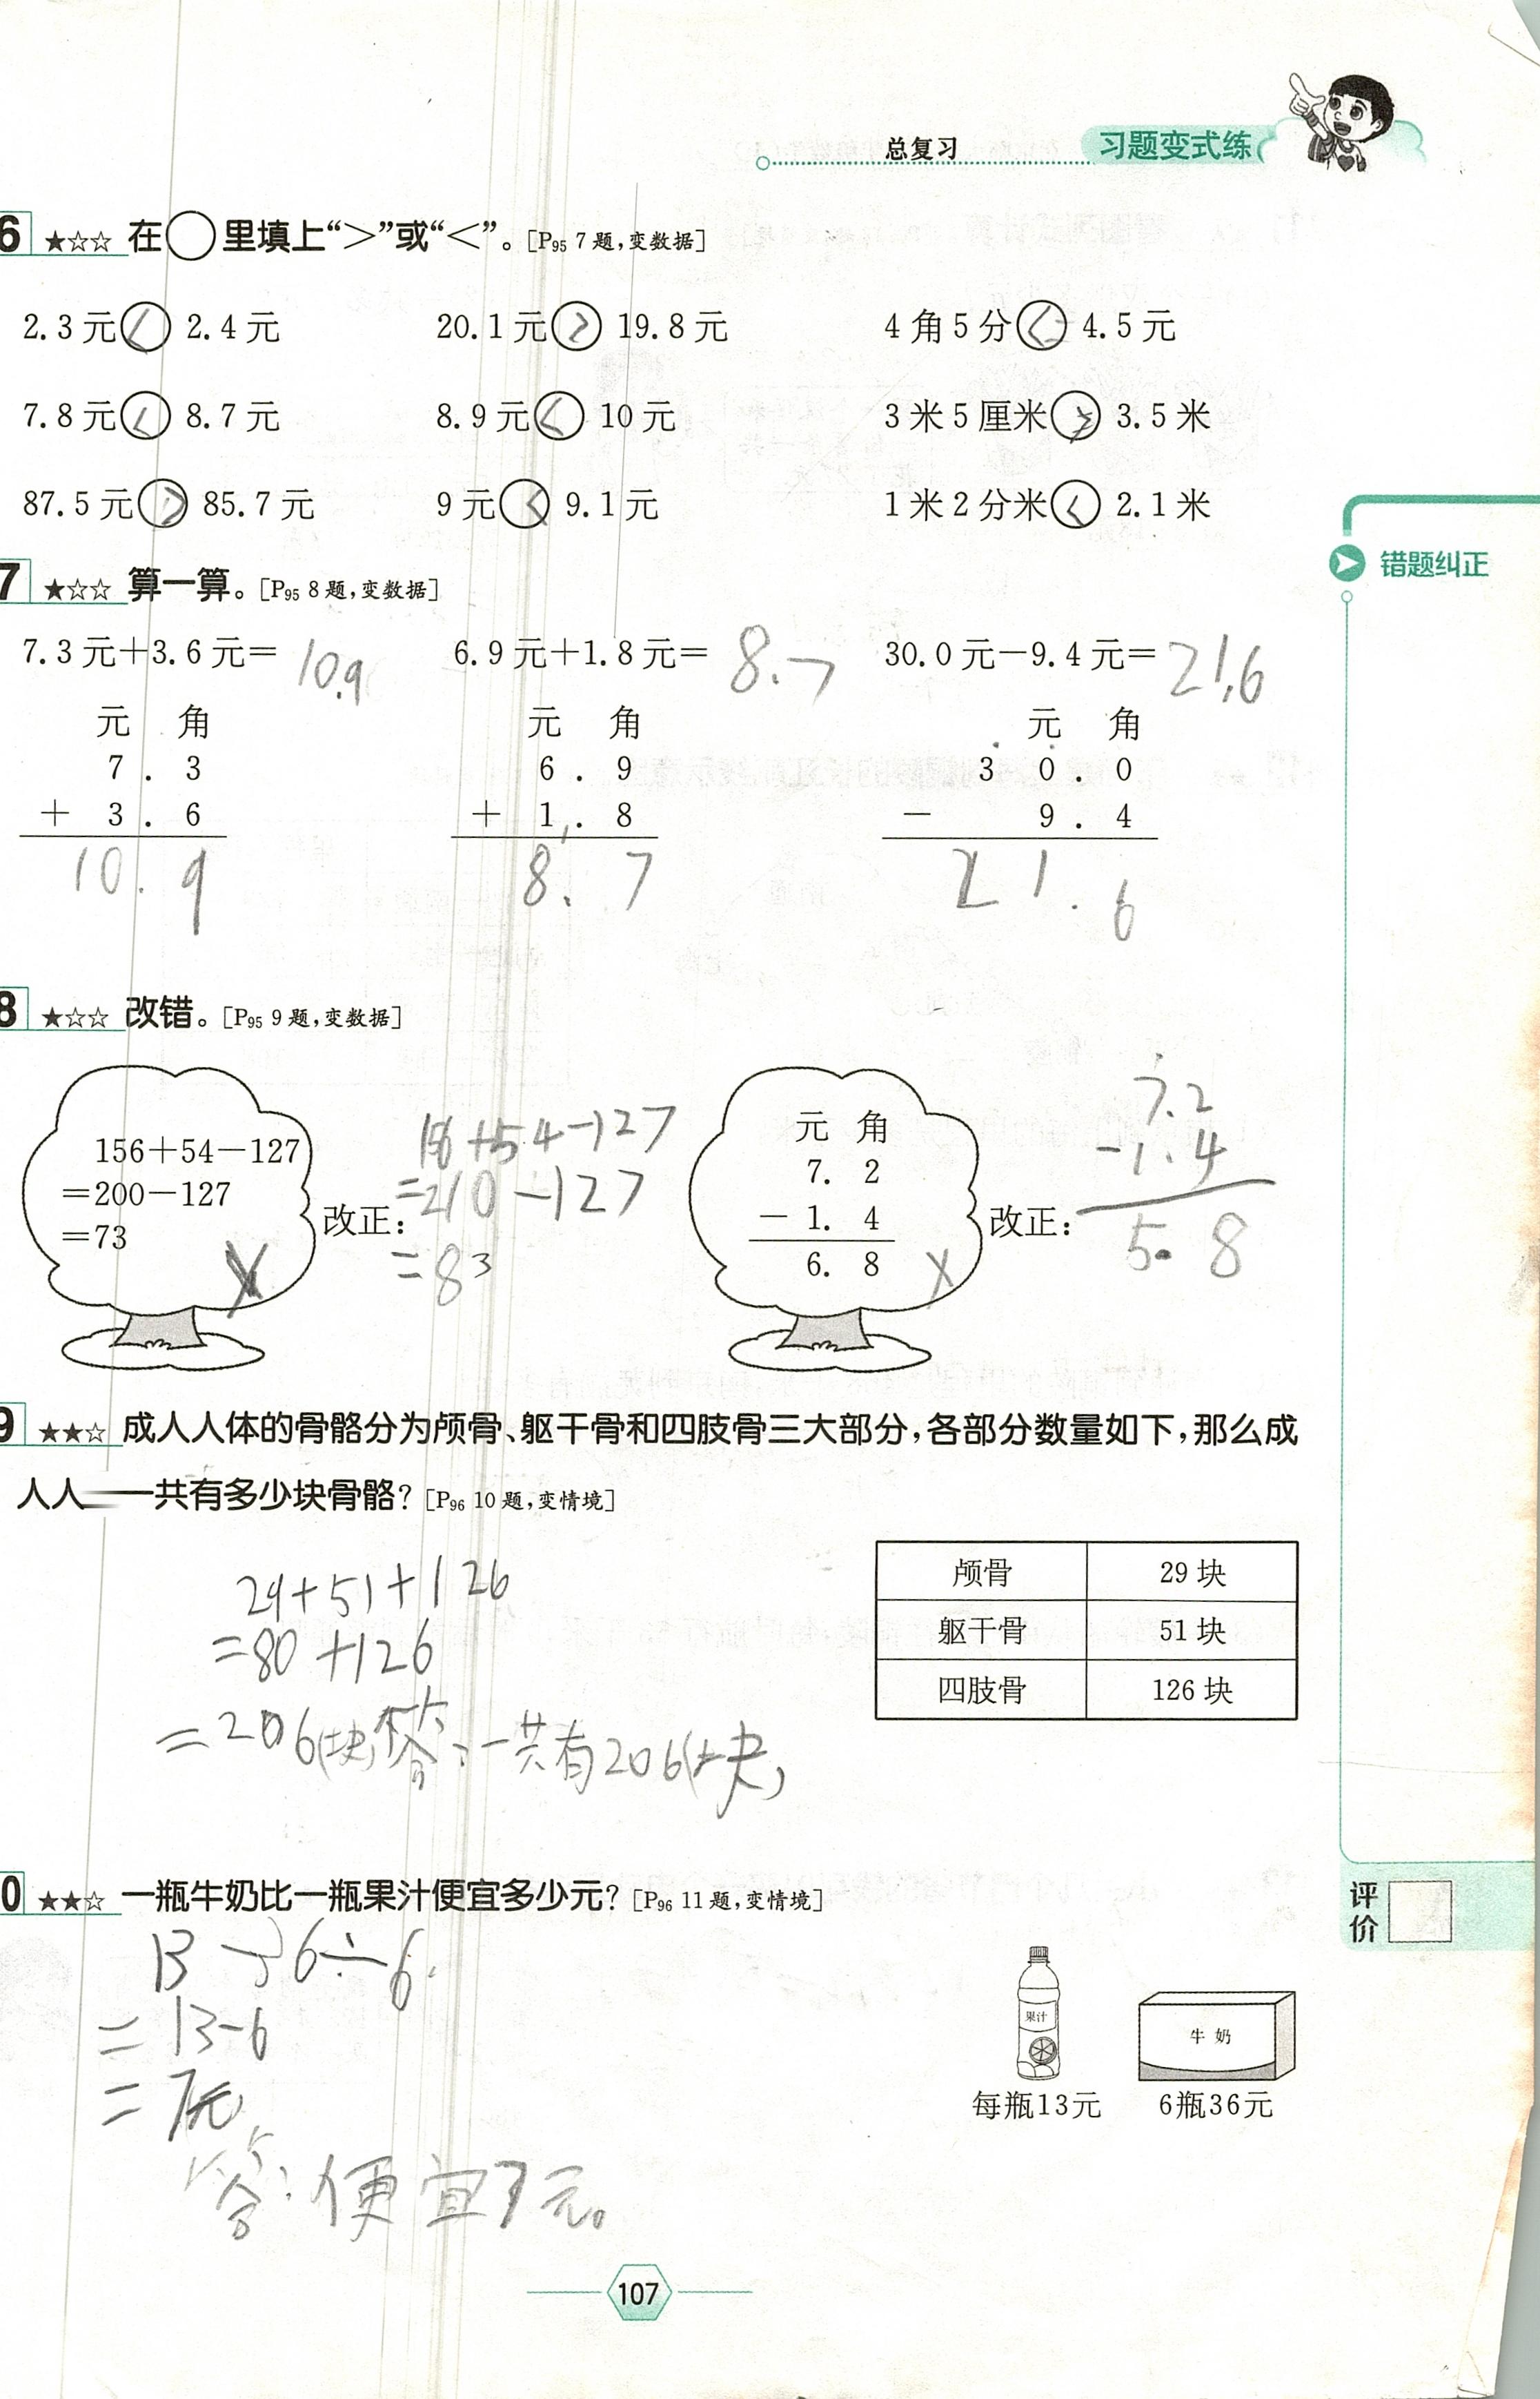 总复习 习题变式练
6 ★☆☆ 在○里填上“>”或“<”。[P95 7题,变数据]
2.3元 < 2.4元 20.1元 > 19.8元 4角5分 < 4.5元
7.8元 < 8.7元 8.9元 < 10元 3米5厘米 3.5米
87.5元 > 85.7元 9元 < 9.1元 1米2分米 < 2.1米
错题纠正
7 ★☆☆ 算一算。[P95 8题,变数据]
7.3元+3.6元= 10.9 6.9元+1.8元= 8.7 30.0元-9.4元= 21.6
元 角 元 角 元 角
7.3 6.9 30.0
+ 3.6 + 1.8 - 9.4
10.9 8.7 21.6
8 ★☆☆ 改错。[P95 9题,变数据]
156+54-127
=200-127
=73
×
改正:
156+54-127
=210-127
=83
元 角
7.2
- 1.4
6.8
×
改正:
7.2
-1.4
5.8
9 ★★☆ 成人人体的骨骼分为颅骨、躯干骨和四肢骨三大部分,各部分数量如下,那么成
人人一共有多少块骨骼?[P96 10题,变情境]
29+51+126
=80+126
=206(块)答:一共有206(块)
颅骨 29块
躯干骨 51块
四肢骨 126块
0 ★★☆ 一瓶牛奶比一瓶果汁便宜多少元?[P96 11题,变情境]
13-36÷6
=13-6
=7元
答:便宜7元。
果汁
牛奶
每瓶13元 6瓶36元
评价
107